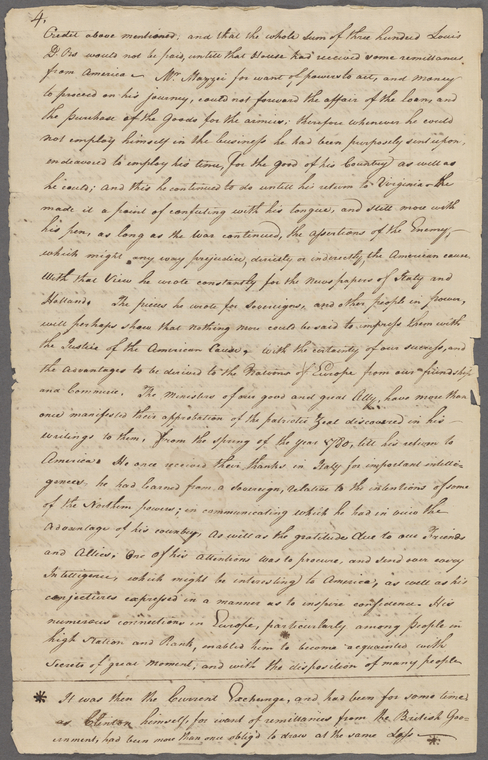 4.
Credit above mentioned; and that the whole sum of three hundred Louis
D'Ors would not be paid, untill that House had received some remittances
from America. Mr. Mazzei for want of powers to act, and money
to proceed on his journey, could not forward the affair of the loan, and
the purchase of the Goods for the armies; therefore whenever he could
not employ himself in the business he had been purposely sent upon,
endeavored to employ his time, for the good of his Country as well as
he could; and this he continued to do untill his return to Virginia. He
made it a point of confuting with his tongue, and still more with
his pen, as long as the War continued, the assertions of the Enemy,
which might any way prejudice, directly or indirectly, the American cause.
With that View he wrote constantly for the Newspapers of Italy and
Holland. The pieces he wrote for Sovereigns, and other people in power,
will perhaps show that nothing more could be said to impress them with
the Justice of the American Cause, with the certainty of our success, and
the advantages to be derived to the Nations of Europe from our friendship
and Commerce. The Ministers of our good and great Ally, have more than
once manifested their approbation of the patriotic Zeal discovered in his
writings to them, from the spring of the year 1780, till his return to
America. He once received their thanks in Italy for important intelli-
gences he had learned from a Sovereign, relative to the intentions of some
of the Northern powers; in communicating which he had in view the
advantage of his country, as well as the gratitude due to our Friends
and Allies. One of his attentions was to procure, and send over every
Intelligence, which might be interesting to America, as well as his
conjectures expressed in a manner as to inspire confidence. His
numerous connections in Europe, particularly among people in
high Station and Rank, enabled him to become acquainted with
Secrets of great moment, and with the disposition of many people
* It was then the Current Exchange, and had been for some time,
as Clinton himself, for want of remittances from the British Gov-
ernment, had been more than once oblig'd to draw at the same Loss *